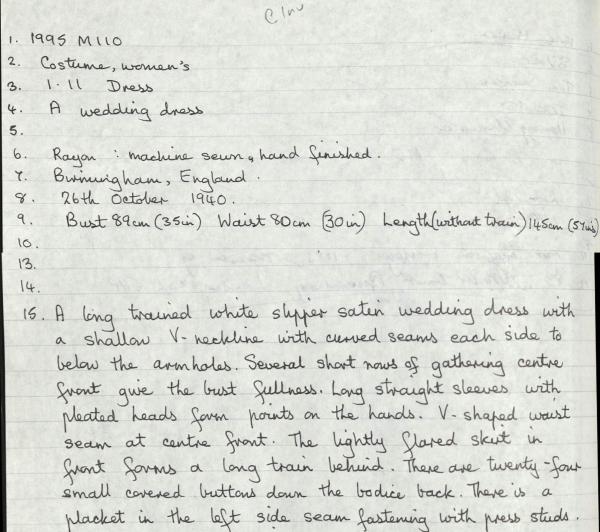 1. 1995 M110
2. Costume, women's
3. 1.11 Dress
4. A wedding dress
5.
6. Rayon : machine sewn, hand finished.
7. Birmingham, England.
8. 26th October 1940.
9. Bust 89cm (35in) Waist 80cm (30in) Length (without train) 145cm (57ins)
10.
13.
14.
15. A long trained white slipper satin wedding dress with
a shallow V-neckline with curved seams each side to
below the armholes. Several short rows of gathering centre
front give the bust fullness. Long straight sleeves with
pleated heads form points on the hands. V-shaped waist
seam at centre front. The lightly flared skirt in
front forms a long train behind. There are twenty-four
small covered buttons down the bodice back. There is a
placket in the left side seam fastening with press studs.